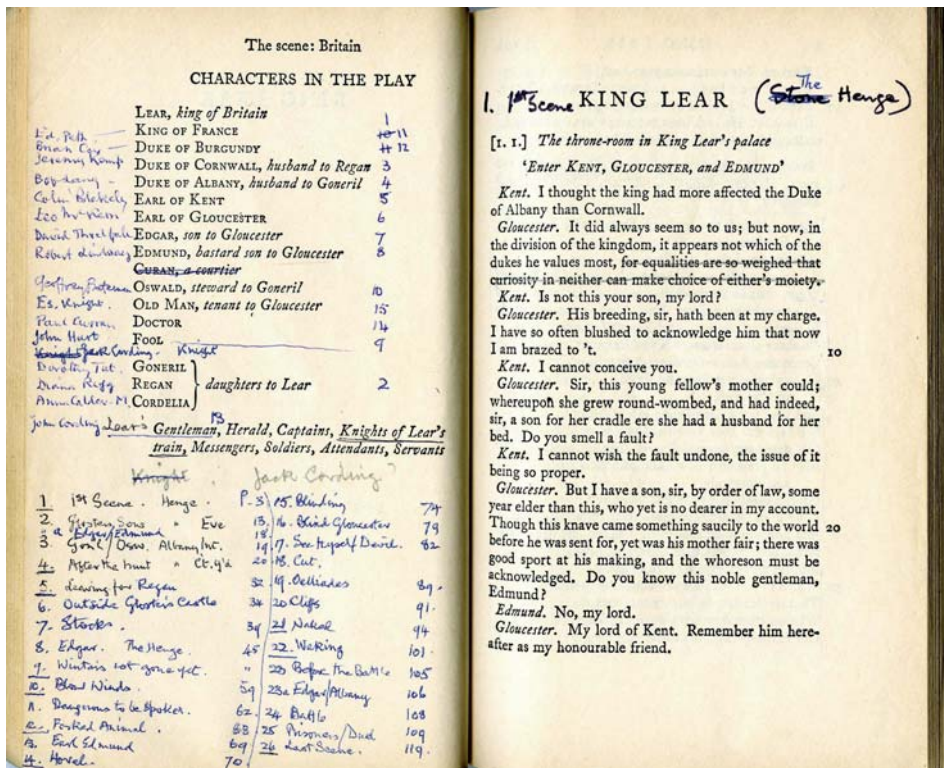 The scene: Britain
CHARACTERS IN THE PLAY
LEAR, king of Britain 1
Ed. Peth — KING OF FRANCE 10 11
Brian Cox — DUKE OF BURGUNDY 11 12
Jeremy Kemp DUKE OF CORNWALL, husband to Regan 3
Bob Lang - DUKE OF ALBANY, husband to Goneril 4
Colin Blakely EARL OF KENT 5
Leo McKern EARL OF GLOUCESTER 6
David Threlfall EDGAR, son to Gloucester 7
Robert Lindsay EDMUND, bastard son to Gloucester 8
CURAN, a courtier
Geoffrey Bateman OSWALD, steward to Goneril 10
Es. Knight. OLD MAN, tenant to Gloucester 15
Paul Curran DOCTOR 14
John Hurt FOOL 9
Knight Jack Cording. Knight
Dorothy Tut. GONERIL
Diana Rigg REGAN daughters to Lear 2
Anna Calder-M. CORDELIA
John Cording Lear's Gentleman, 13 Herald, Captains, Knights of Lear's
train, Messengers, Soldiers, Attendants, Servants
Knight : Jack Cording?
1 1st Scene. Henge. P. 3
2. Glosters Sons " Eve 13.
a Edgar/Edmund 18
3. Gon'l / Osw. Albany Int. 19
4. After the hunt " Ct. Y'd 20
5. Leaving for Regan 32
6. Outside Gloster's Castle 34
7- Stocks. 39
8. Edgar. The Henge. 45
9. Winter's not gone yet. "
10. Blow Winds. 59
11. Dangerous to be spoken. 62.
12. Forked Animal. 68
13. Earl Edmund 69
14. Hovel. 70
15. Blinding 74
16. Blind Gloucester 79
17. See thyself Devil. 82
18. Cut.
19. Oeillades 89.
20 Cliffs 91.
21 Naked 94
22. Waking 101.
23 Before the Battle 105
23a Edgar/Albany 106
24 Battle 108
25 Prisoners/Duel 109
26 Last Scene. 119.
1. 1st Scene KING LEAR (Stone The Henge)
[1. 1.] The throne-room in King Lear's palace
'Enter KENT, GLOUCESTER, and EDMUND'
Kent. I thought the king had more affected the Duke
of Albany than Cornwall.
Gloucester. It did always seem so to us; but now, in
the division of the kingdom, it appears not which of the
dukes he values most, for equalities are so weighed that
curiosity in neither can make choice of either's moiety.
Kent. Is not this your son, my lord?
Gloucester. His breeding, sir, hath been at my charge.
I have so often blushed to acknowledge him that now
I am brazed to 't. 10
Kent. I cannot conceive you.
Gloucester. Sir, this young fellow's mother could;
whereupon she grew round-wombed, and had indeed,
sir, a son for her cradle ere she had a husband for her
bed. Do you smell a fault?
Kent. I cannot wish the fault undone, the issue of it
being so proper.
Gloucester. But I have a son, sir, by order of law, some
year elder than this, who yet is no dearer in my account.
Though this knave came something saucily to the world 20
before he was sent for, yet was his mother fair; there was
good sport at his making, and the whoreson must be
acknowledged. Do you know this noble gentleman,
Edmund?
Edmund. No, my lord.
Gloucester. My lord of Kent. Remember him here-
after as my honourable friend.